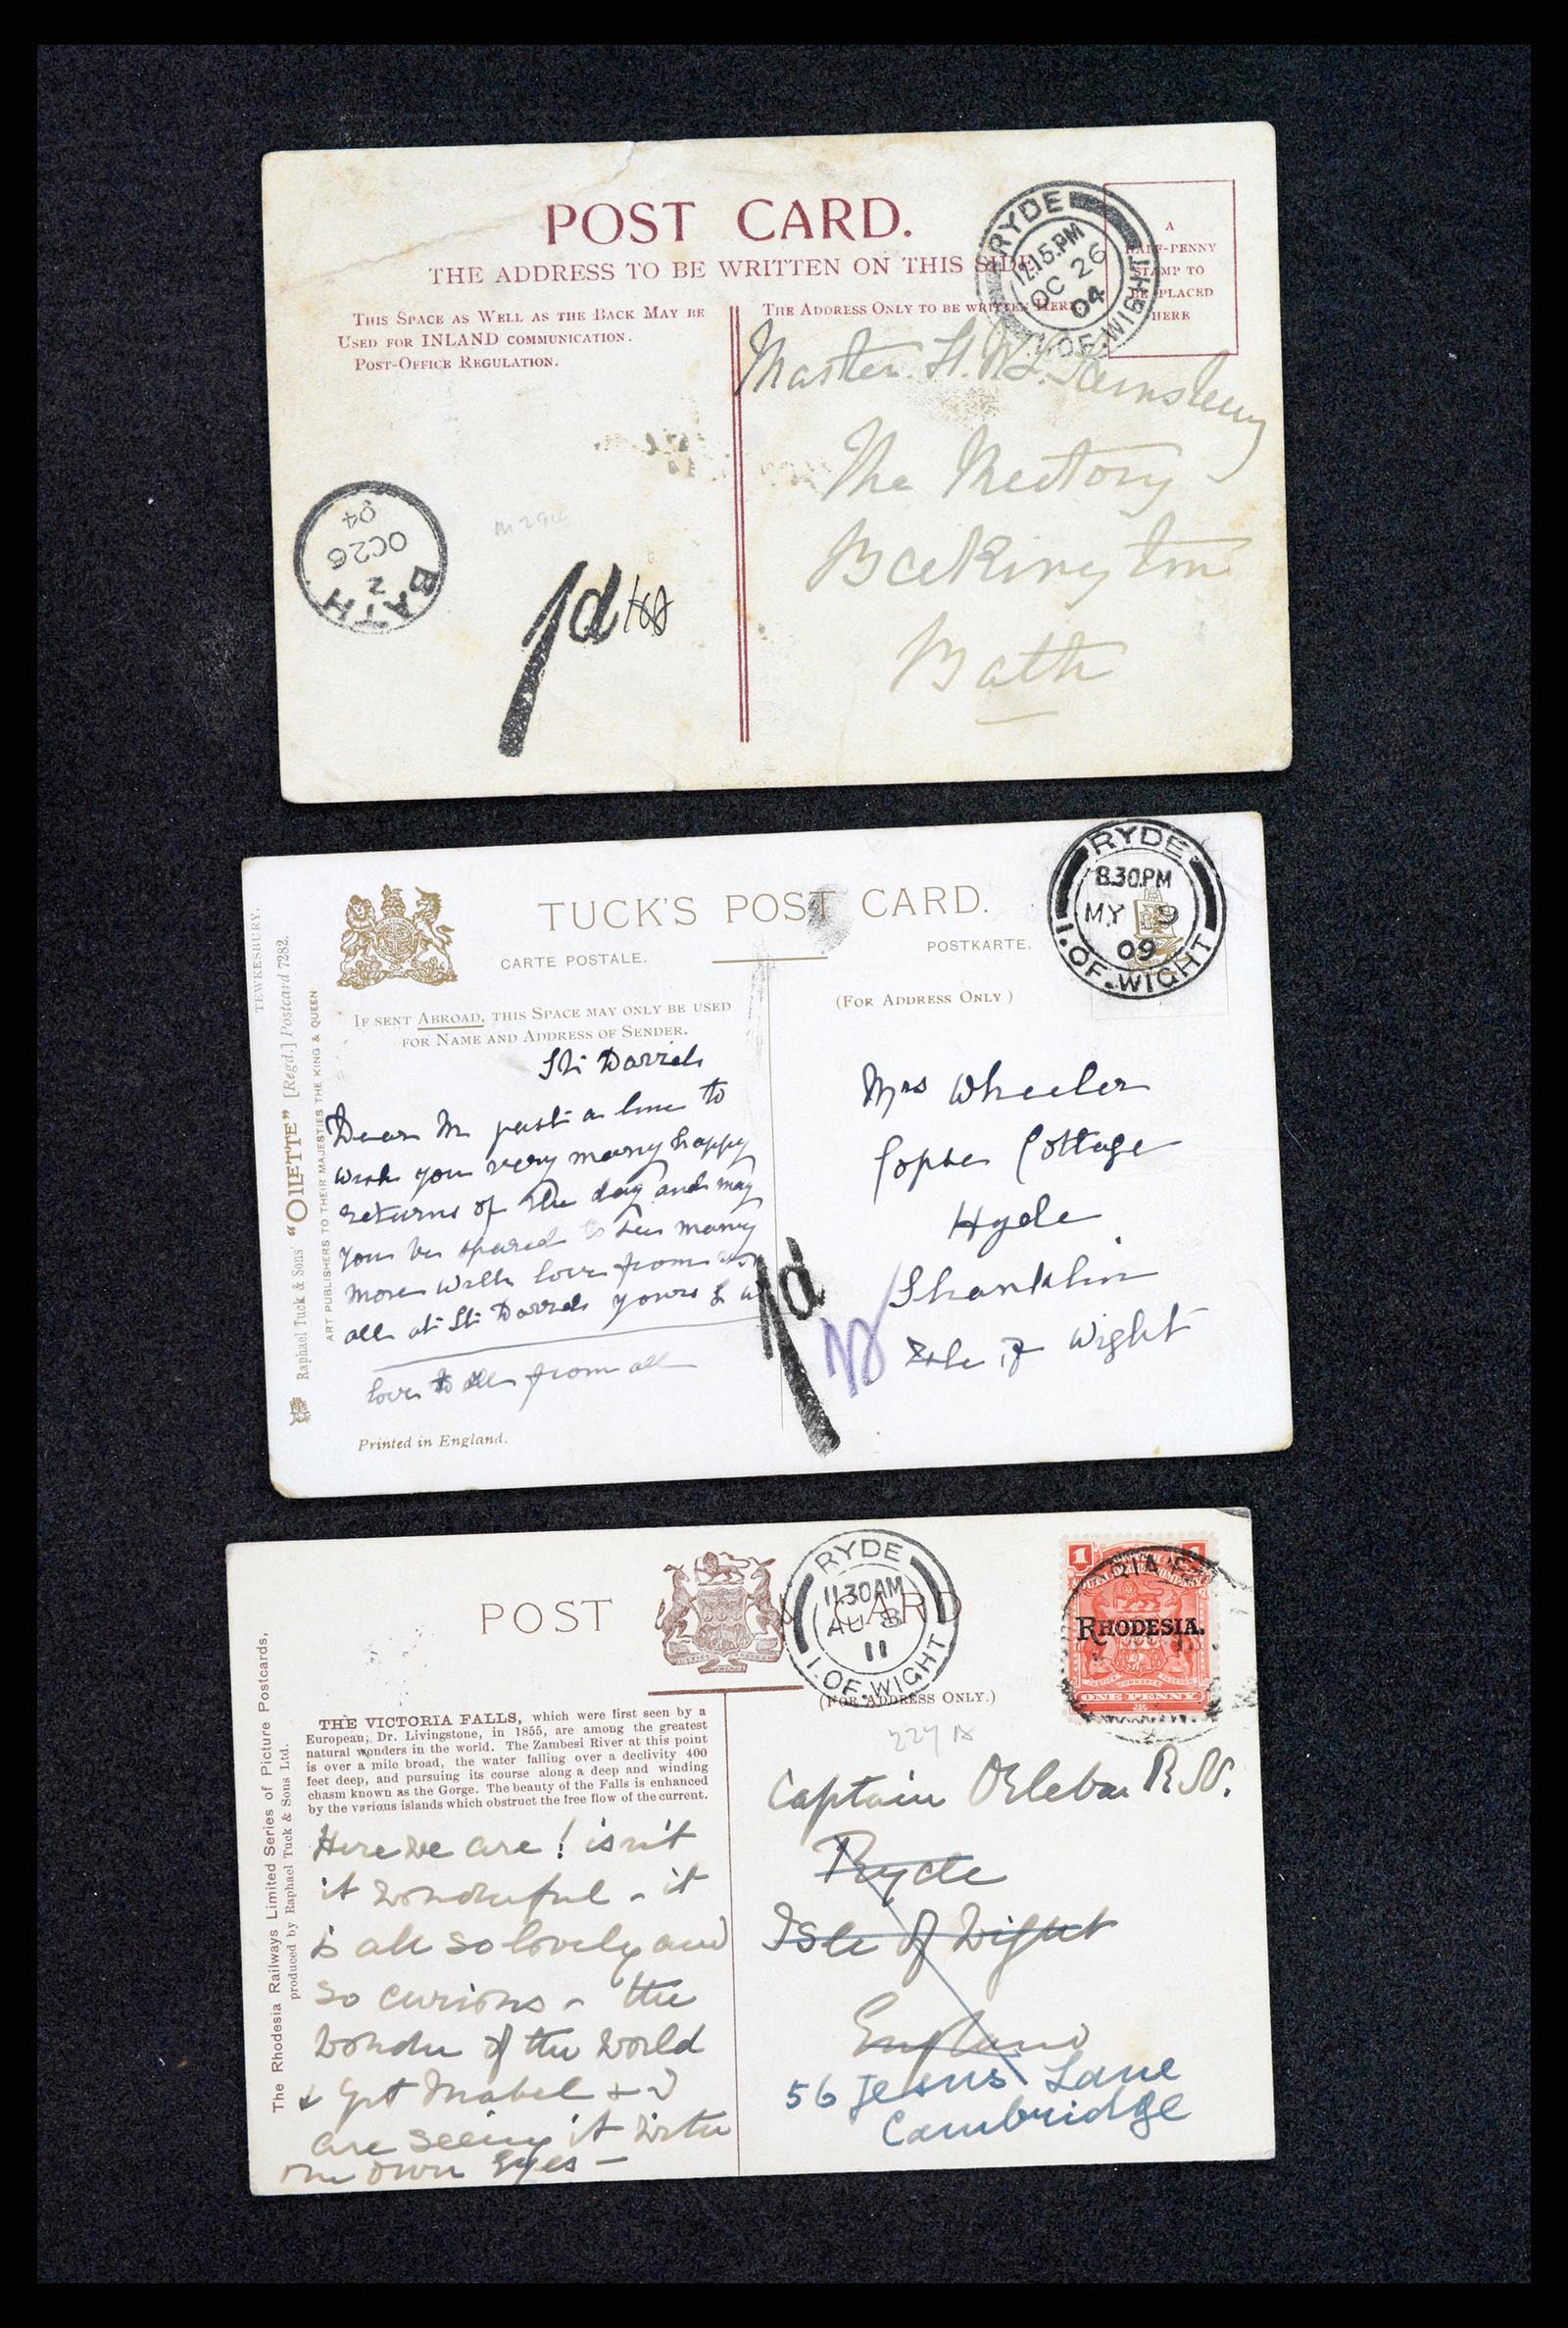 POST CARD.
THE ADDRESS TO BE WRITTEN ON THIS SIDE.
THIS SPACE AS WELL AS THE BACK MAY BE
USED FOR INLAND COMMUNICATION.
POST-OFFICE REGULATION.
THE ADDRESS ONLY TO BE WRITTEN HERE
A
HALF-PENNY
STAMP TO
BE PLACED
HERE
RYDE
12.15.PM
OC 26
04
I.OF.WIGHT
Master
The Rectory
Beckington
Bath
BATH
2
OC 26
04
1d
TUCK'S POST CARD.
CARTE POSTALE.
POSTKARTE.
(FOR ADDRESS ONLY)
IF SENT ABROAD, THIS SPACE MAY ONLY BE USED
FOR NAME AND ADDRESS OF SENDER.
RYDE
8.30.PM
MY 9
09
I.OF.WIGHT
TEWKESBURY.
Raphael Tuck & Sons' "OILETTE" [Regd.] Postcard 7282.
ART PUBLISHERS TO THEIR MAJESTIES THE KING & QUEEN
Dear M just a line to
wish you very many happy
returns of the day and may
you be spared to see many
more with love from us
all at St Yours
love to all from all
Printed in England.
Mrs Wheeler
Copse Cottage
Hyde
Shanklin
Isle of Wight
1d
POST CARD
(FOR ADDRESS ONLY.)
RYDE
11.30AM
AU 8
11
I.OF.WIGHT
1
RHODESIA.
ONE PENNY
The Rhodesia Railways Limited Series of Picture Postcards,
produced by Raphael Tuck & Sons Ltd.
THE VICTORIA FALLS, which were first seen by a
European, Dr. Livingstone, in 1855, are among the greatest
natural wonders in the world. The Zambesi River at this point
is over a mile broad, the water falling over a declivity 400
feet deep, and pursuing its course along a deep and winding
chasm known as the Gorge. The beauty of the Falls is enhanced
by the various islands which obstruct the free flow of the current.
Here we are! isn't
it wonderful - it
is all so lovely and
so curious - the
wonder of the world
& Mabel & I
are seeing it with
our own eyes -
Captain Orlebar R.N.
Ryde
Isle of Wight
England
56 Jesus Lane
Cambridge